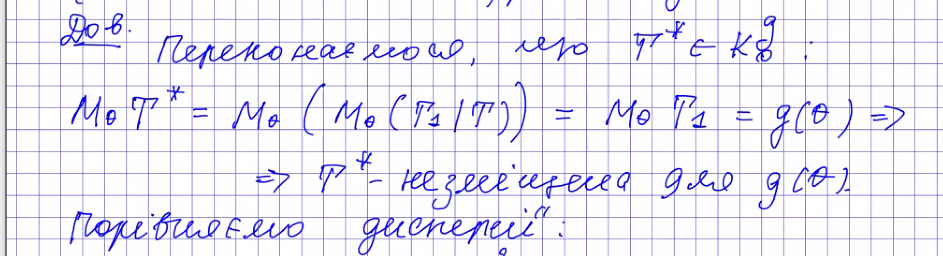 Дов.
Переконаємося, що T* ∈ K₀ᵍ :
M_θ T* = M_θ (M_θ (T₁/T)) = M_θ T₁ = g(θ) =>
=> T* - незміщена для g(θ).
Порівняємо дисперсії: